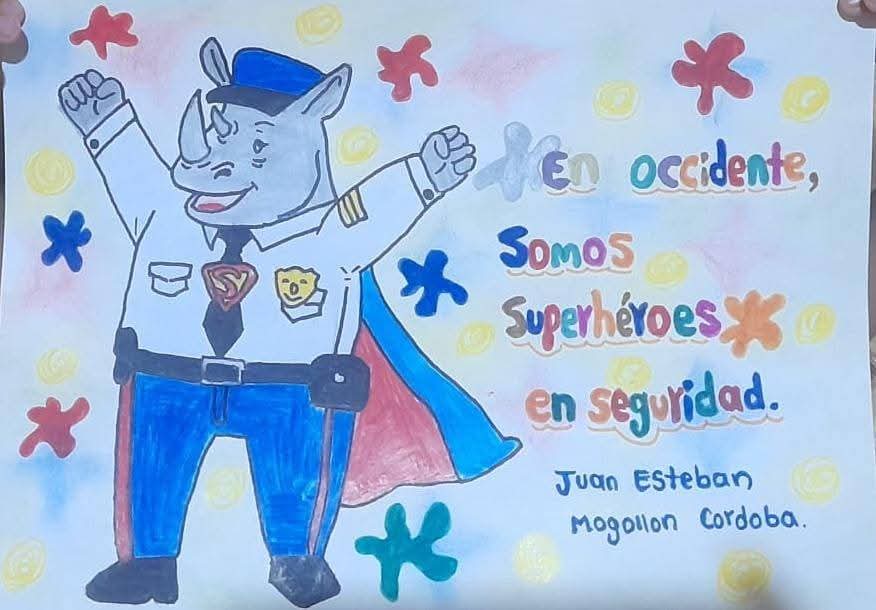 En occidente,
Somos
Superhéroes
en seguridad.
Juan Esteban
Mogollon Cordoba.
S